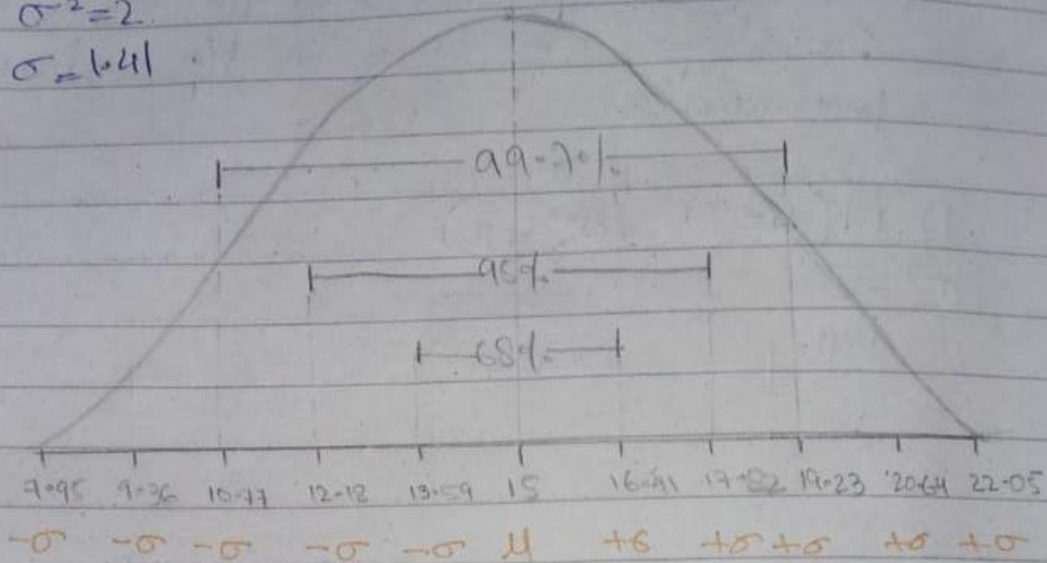 σ²=2
σ=1.41
99.7%
95%
68%
7.95 9.36 10.77 12.18 13.59 15 16.41 17.82 19.23 20.64 22.05
-σ -σ -σ -σ -σ μ +σ +σ +σ +σ +σ